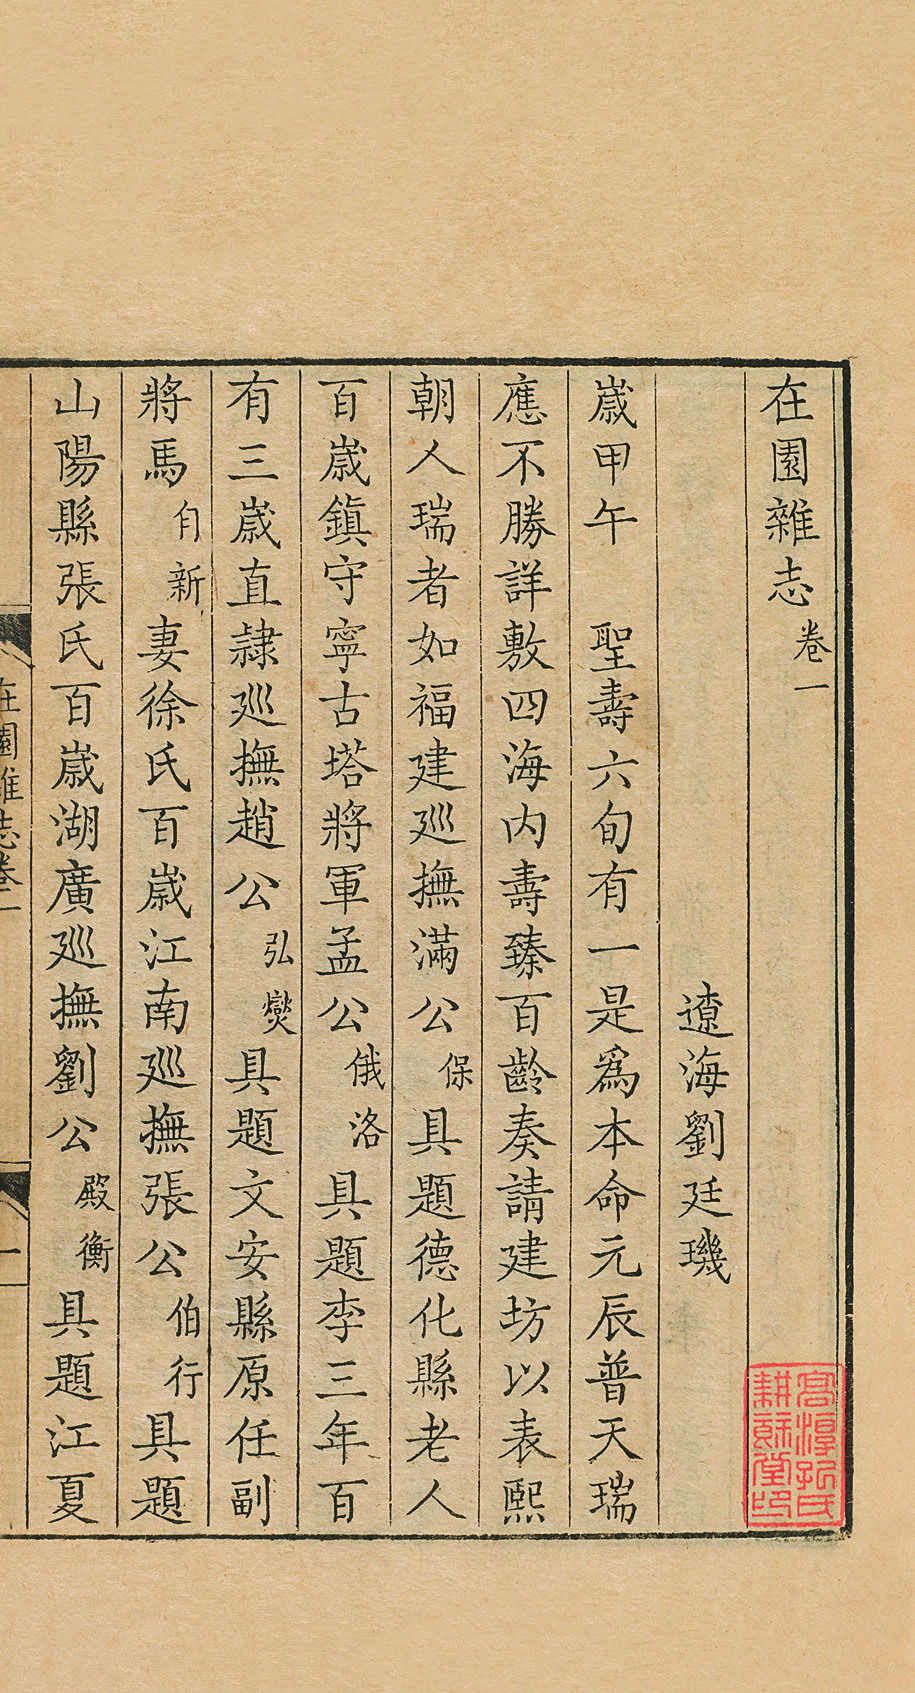 在園雜志卷一
遼海劉廷璣
歲甲午　聖壽六旬有一是爲本命元辰普天瑞
應不勝詳敷四海内壽臻百齡奏請建坊以表熙
朝人瑞者如福建廵撫滿公保具題德化縣老人
百歲鎮守寧古塔將軍孟公俄洛具題李三年百
有三歲直隷廵撫趙公弘爕具題文安縣原任副
將馬自新妻徐氏百歲江南廵撫張公伯行具題
山陽縣張氏百歲湖廣廵撫劉公殿衡具題江夏
在園雜志卷一
一
高淳孔氏
耕餘堂印